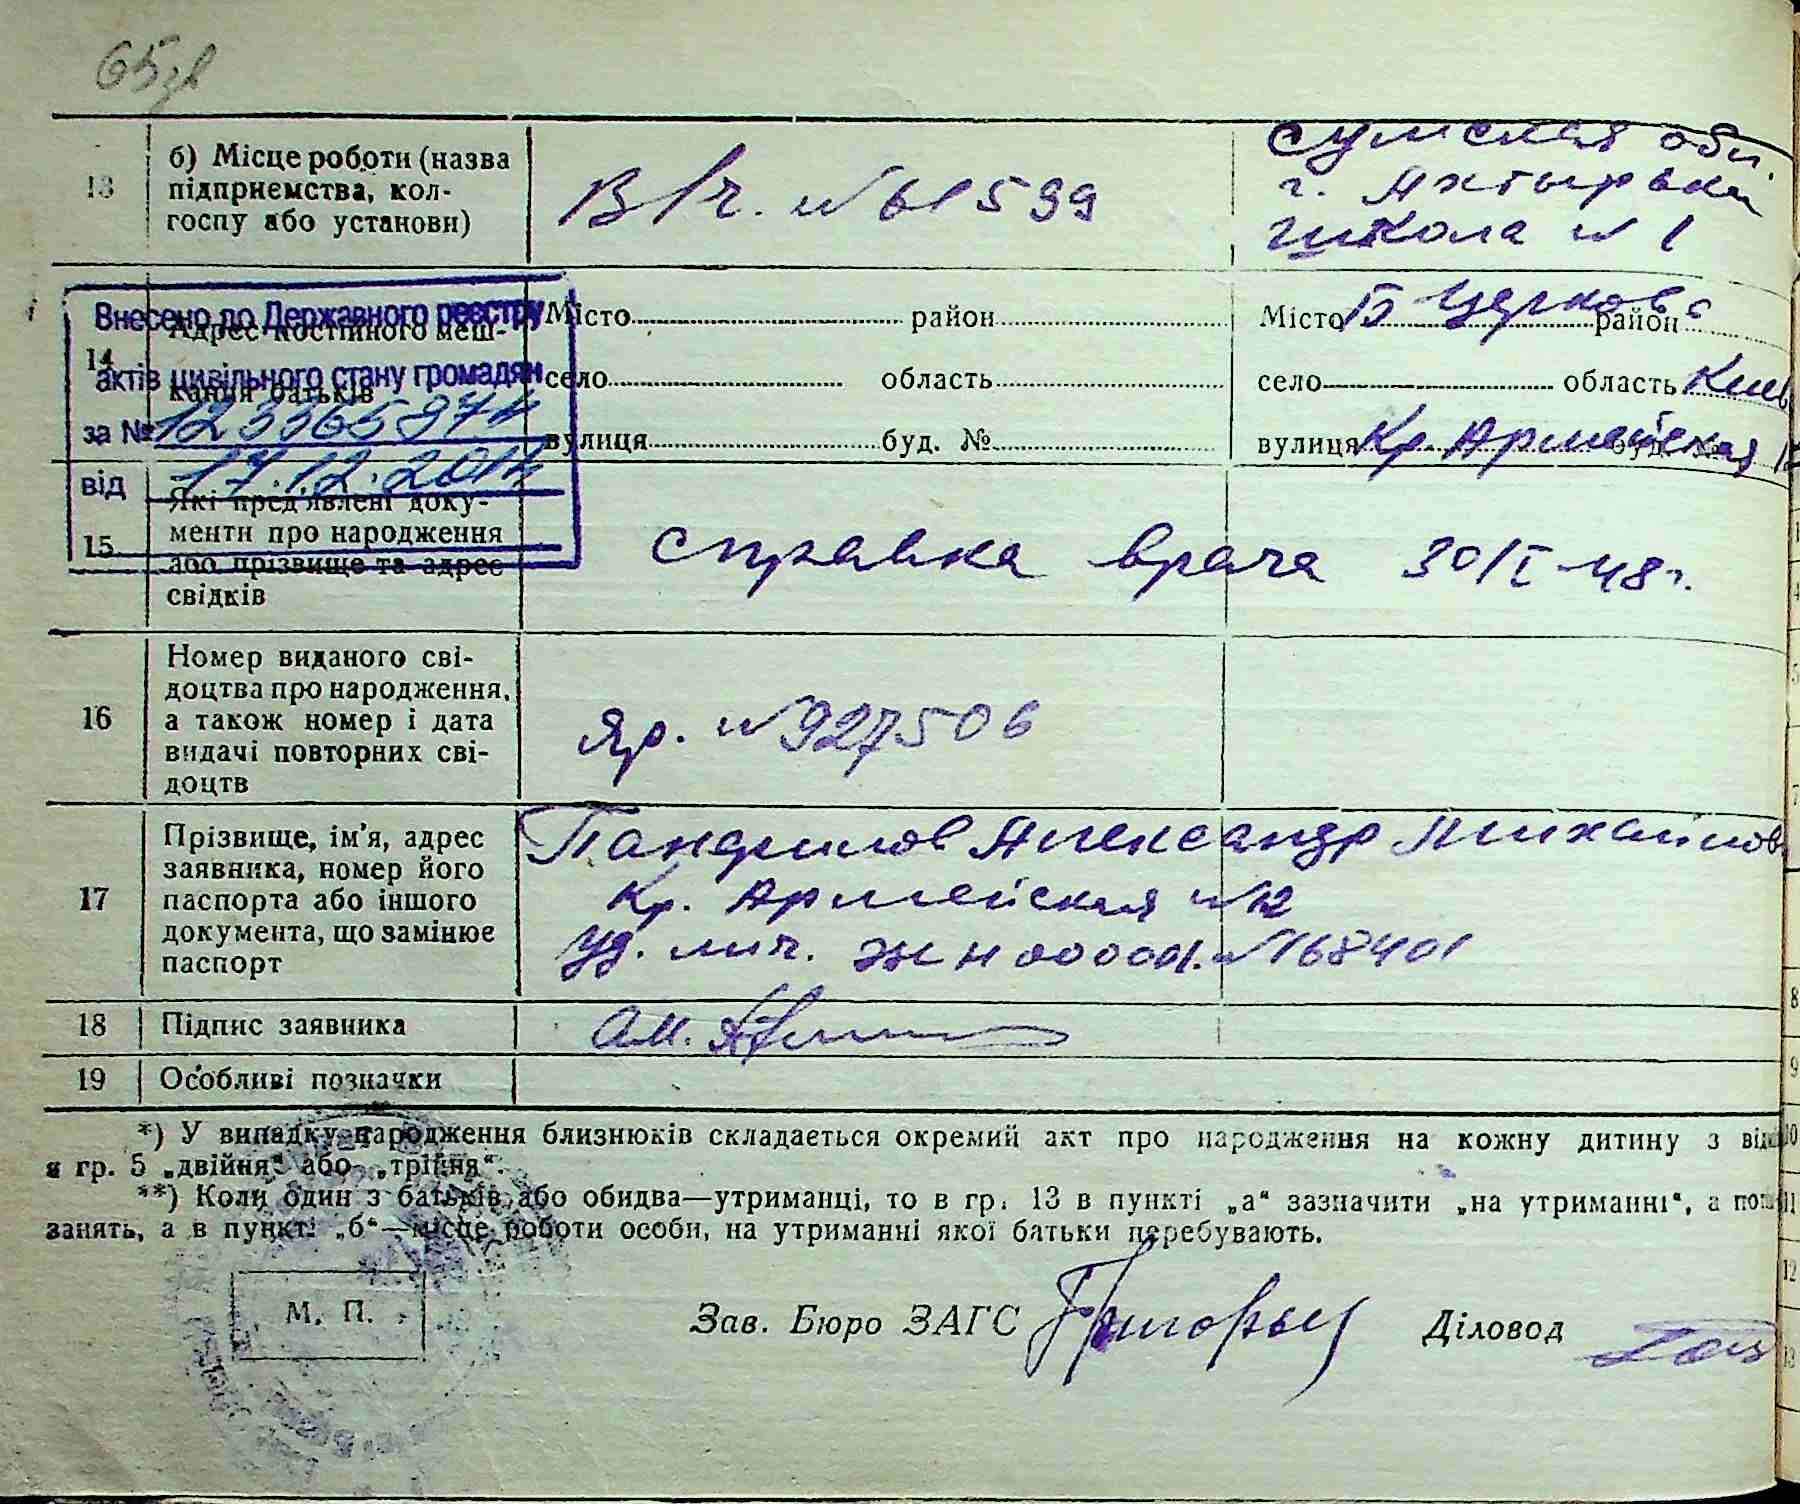 65зв
13
б) Місце роботи (назва
підприємства, кол-
госпу або установи)
В/ч. № 61599
Сумская обл.
г. Ахтырька
школа № 1
Внесено до Державного реєстру
актів цивільного стану громадян
за №
від 17.12.2012
14
Адрес постійного меш-
кання батьків
Місто район
село область
вулиця буд. №
Місто Б Церковь район
село область Киев
вулиця Кр. Армейская буд. № 12
15
Які пред'явлені доку-
менти про народження
або прізвище та адрес
свідків
справка врача 30/I-48 г.
16
Номер виданого сві-
доцтва про народження,
а також номер і дата
видачі повторних сві-
доцтв
Яр. № 927506
17
Прізвище, ім'я, адрес
заявника, номер його
паспорта або іншого
документа, що замінює
паспорт
Панфилов Александр Михайлов
Кр. Армейская № 12
Уд. лич. № 168401
18
Підпис заявника
А.М.
19
Особливі позначки
*) У випадку народження близнюків складається окремий акт про народження на кожну дитину з від
в гр. 5 „двійня“ або „трійня“.
**) Коли один з батьків або обидва—утриманці, то в гр. 13 в пункті „а“ зазначити „на утриманні“, а
занять, а в пункті „б“—місце роботи особи, на утриманні якої батьки перебувають.
М. П.
Зав. Бюро ЗАГС
Діловод